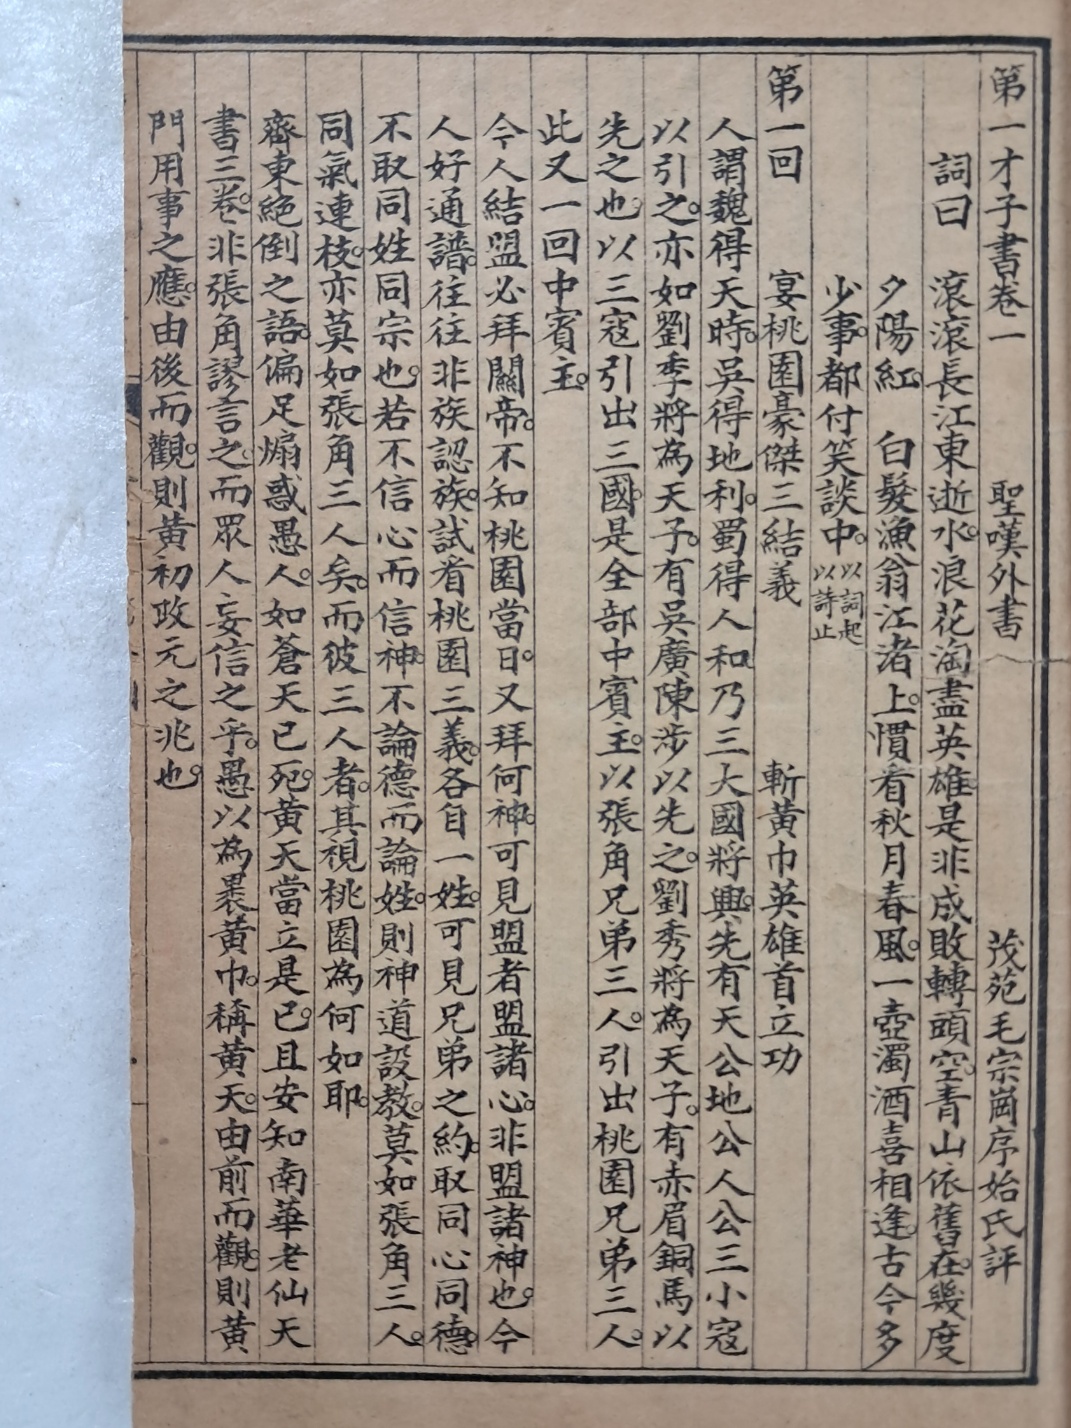 第一才子書卷一　聖嘆外書　茂苑毛宗崗序始氏評
詞曰　滾滾長江東逝水。浪花淘盡英雄。是非成敗轉頭空。青山依舊在。幾度
夕陽紅。　白髮漁翁江渚上。慣看秋月春風。一壺濁酒喜相逢。古今多
少事。都付笑談中。以詞起以詩止
第一回　宴桃園豪傑三結義　斬黃巾英雄首立功
人謂魏得天時。吳得地利。蜀得人和。乃三大國將興。先有天公地公人公三小寇
以引之。亦如劉季將為天子。有吳廣陳涉以先之。劉秀將為天子。有赤眉銅馬以
先之也。以三寇引出三國。是全部中賓主。以張角兄弟三人。引出桃園兄弟三人。
此又一回中賓主。
今人結盟必拜關帝。不知桃園當日。又拜何神。可見盟者盟諸心。非盟諸神也。今
人好通譜。往往非族認族。試看桃園三義。各自一姓。可見兄弟之約。取同心同德。
不取同姓同宗也。若不信心而信神。不論德而論姓。則神道設教。莫如張角三人。
同氣連枝。亦莫如張角三人矣。而彼三人者。其視桃園為何如耶。
齊東絕倒之語。偏足煽惑愚人。如蒼天已死。黃天當立是已。且安知南華老仙天
書三卷。非張角謬言之。而眾人妄信之乎。愚以為裹黃巾。稱黃天。由前而觀。則黃
門用事之應。由後而觀。則黃初改元之兆也。